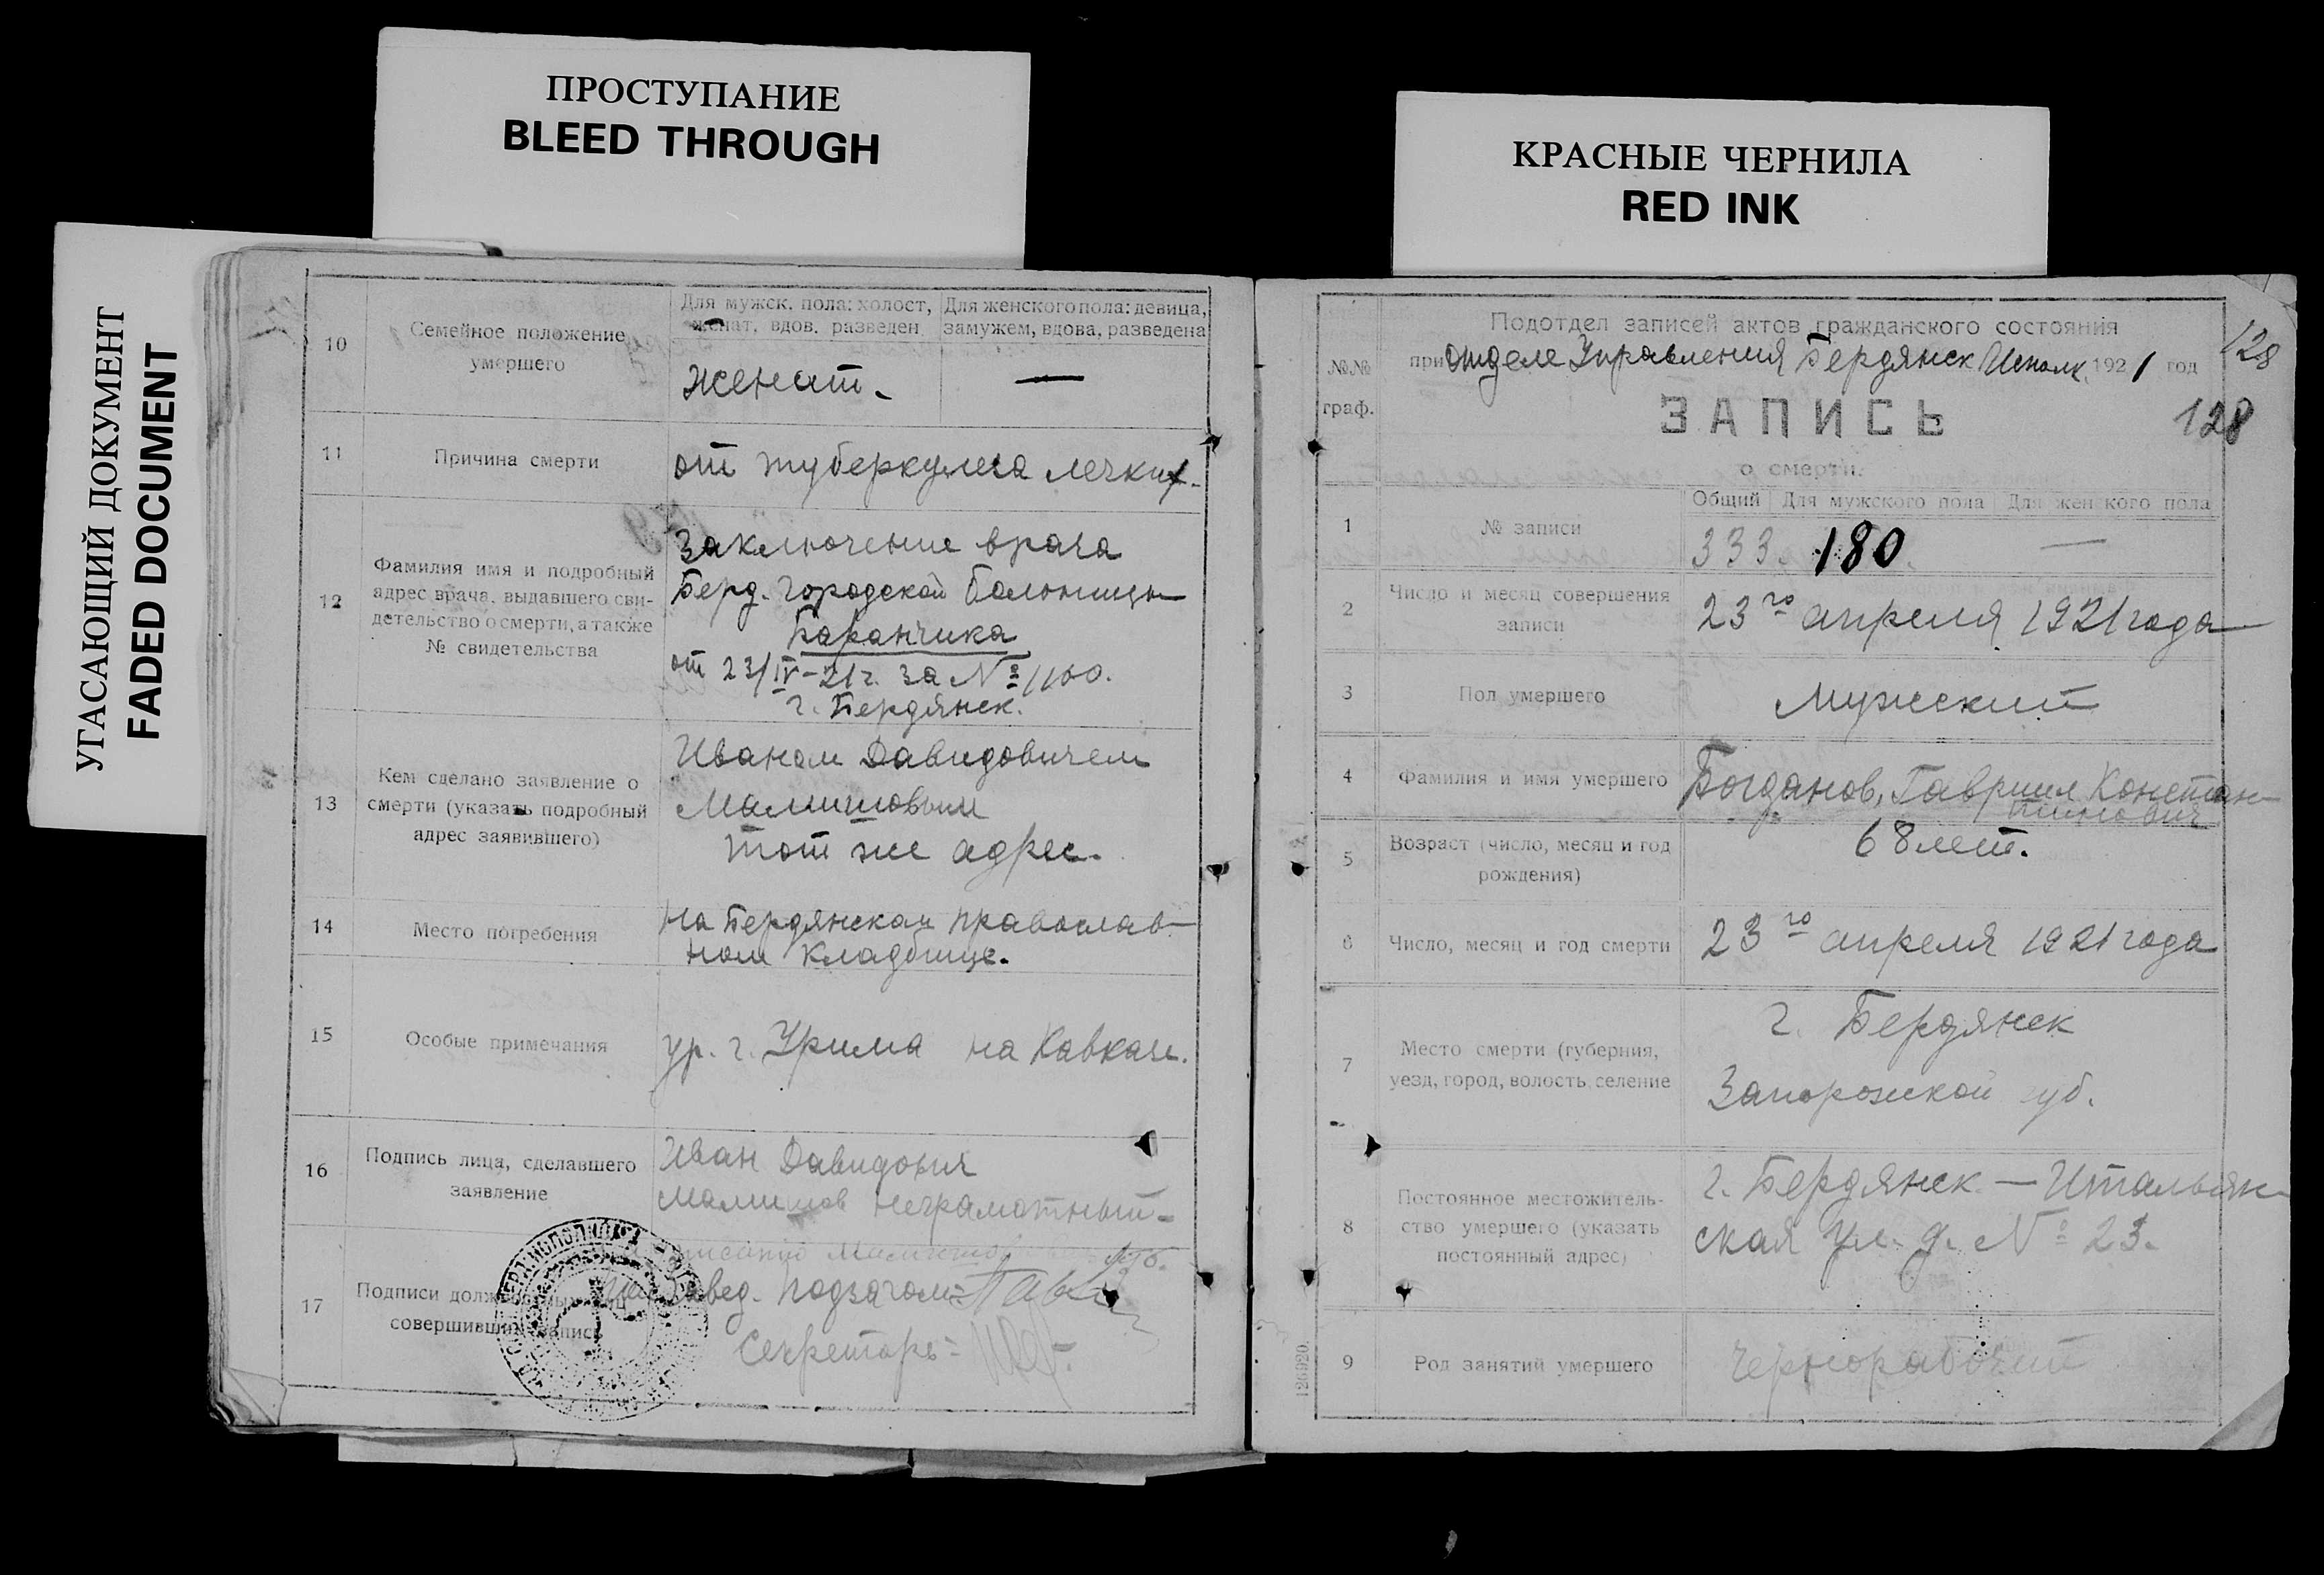 ПРОСТУПАНИЕ
BLEED THROUGH
КРАСНЫЕ ЧЕРНИЛА
RED INK
УГАСАЮЩИЙ ДОКУМЕНТ
FADED DOCUMENT
10
Семейное положение
умершего
Для мужск. пола: холост,
женат, вдов. разведен
Для женского пола: девица,
замужем, вдова, разведена
женат.
—
11
Причина смерти
от туберкулеза легких.
12
Фамилия имя и подробный
адрес врача, выдавшего сви-
детельство о смерти, а также
№ свидетельства
Заключение врача
Берд. городской больницы
Баранчика
от 23/IV-21 г. за № 1100.
г. Бердянск.
13
Кем сделано заявление о
смерти (указать подробный
адрес заявившего)
Иваном Давидовичем
Малишовым
тот же адрес.
14
Место погребения
на Бердянском православ-
ном кладбище.
15
Особые примечания
ур. г. Урима на Кавказе.
16
Подпись лица, сделавшего
заявление
Иван Давидович
Малишов неграмотный-
17
Подписи должностных лиц
совершивших запись
Завед. подзагом=
Секретарь=
№№
граф.
Подотдел записей актов гражданского состояния
при отделе Управления Бердянск Исполк. 1921 год
128
ЗАПИСЬ
128
о смерти.
Общий
Для мужского пола
Для женского пола
1
№ записи
333.
180.
—
2
Число и месяц совершения
записи
23го апреля 1921 года
3
Пол умершего
Мужской
4
Фамилия и имя умершего
Богданов, Гавриил Констан-
тинович
5
Возраст (число, месяц и год
рождения)
68 лет.
6
Число, месяц и год смерти
23го апреля 1921 года
7
Место смерти (губерния,
уезд, город, волость, селение
г. Бердянск
Запорожской губ.
8
Постоянное местожитель-
ство умершего (указать
постоянный адрес)
г. Бердянск — Итальян-
ская ул. д. № 23.
9
Род занятий умершего
Чернорабочий
126920.